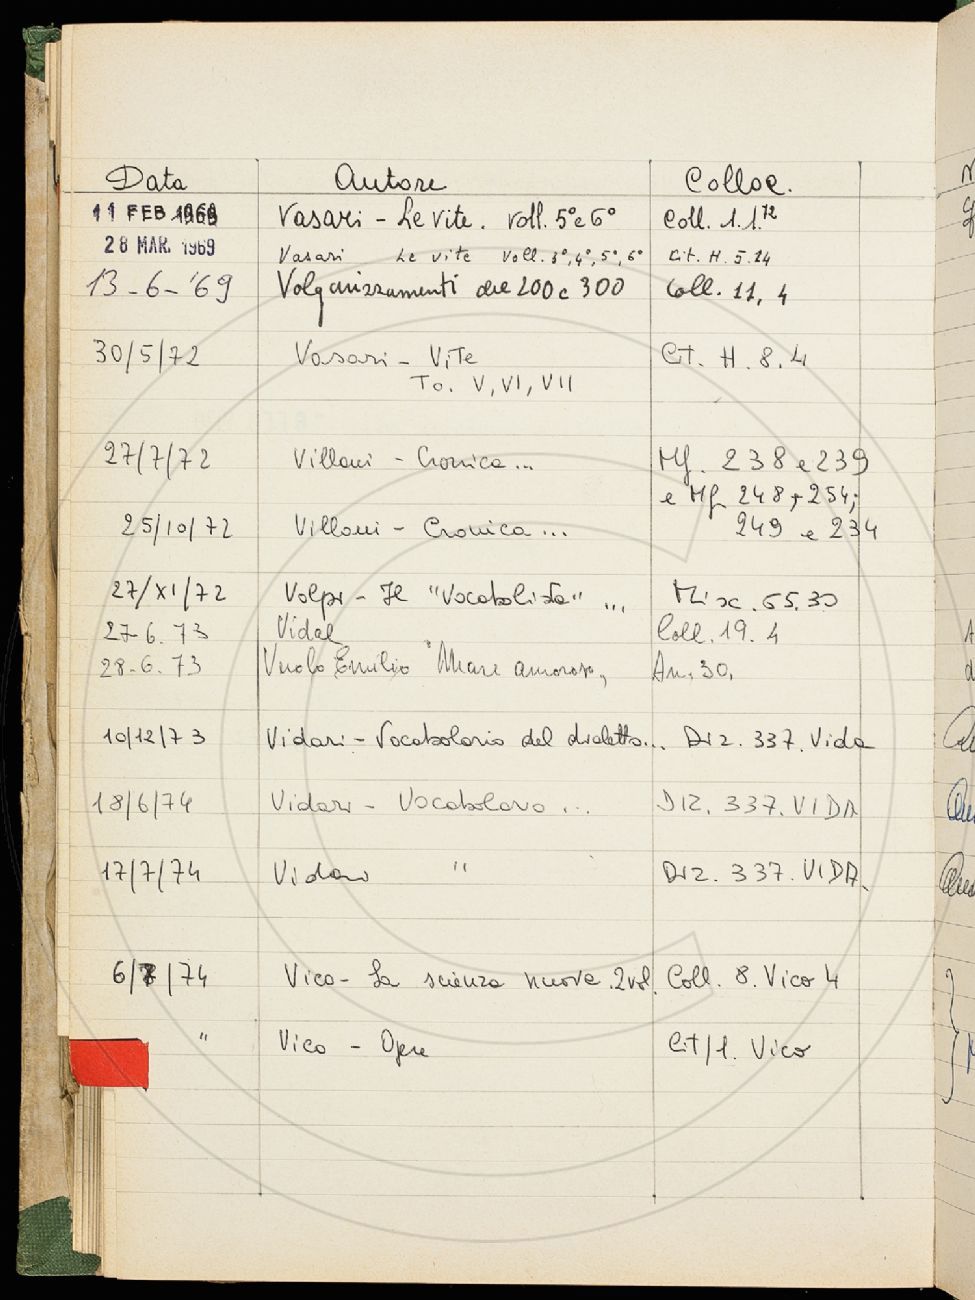 Data Autore Colloc.
11 FEB 1969 Vasari - Le vite. voll. 5° e 6° Coll. 1.1.12
28 MAR. 1969 Vasari Le vite voll. 3°, 4°, 5°, 6° Cit. H. 5.14
13-6-'69 Volgarizzamenti del 200 e 300 Coll. 11, 4
30/5/72 Vasari - Vite Cit. H. 8. 4
To. V, VI, VII
27/7/72 Villani - Cronica... Mf. 238 e 239
e Mf 248, 254;
25/10/72 Villani - Cronica... 249 e 234
27/XI/72 Volpi - Il "Vocabolista" ... Misc. 65. 30
27-6. 73 Vidal Coll. 19. 4
28-6. 73 Vuolo Emilio Mare amoroso, An. 30.
10/12/73 Vidari - Vocabolario del dialetto... Diz. 337. Vida
18/6/74 Vidari - Vocabolario ... DIZ. 337. VIDA
17/7/74 Vidari " Diz. 337. VIDA.
6/8/74 Vico - La scienza nuova. 2 vol. Coll. 8. Vico 4
" Vico - Opere Cit/1. Vico